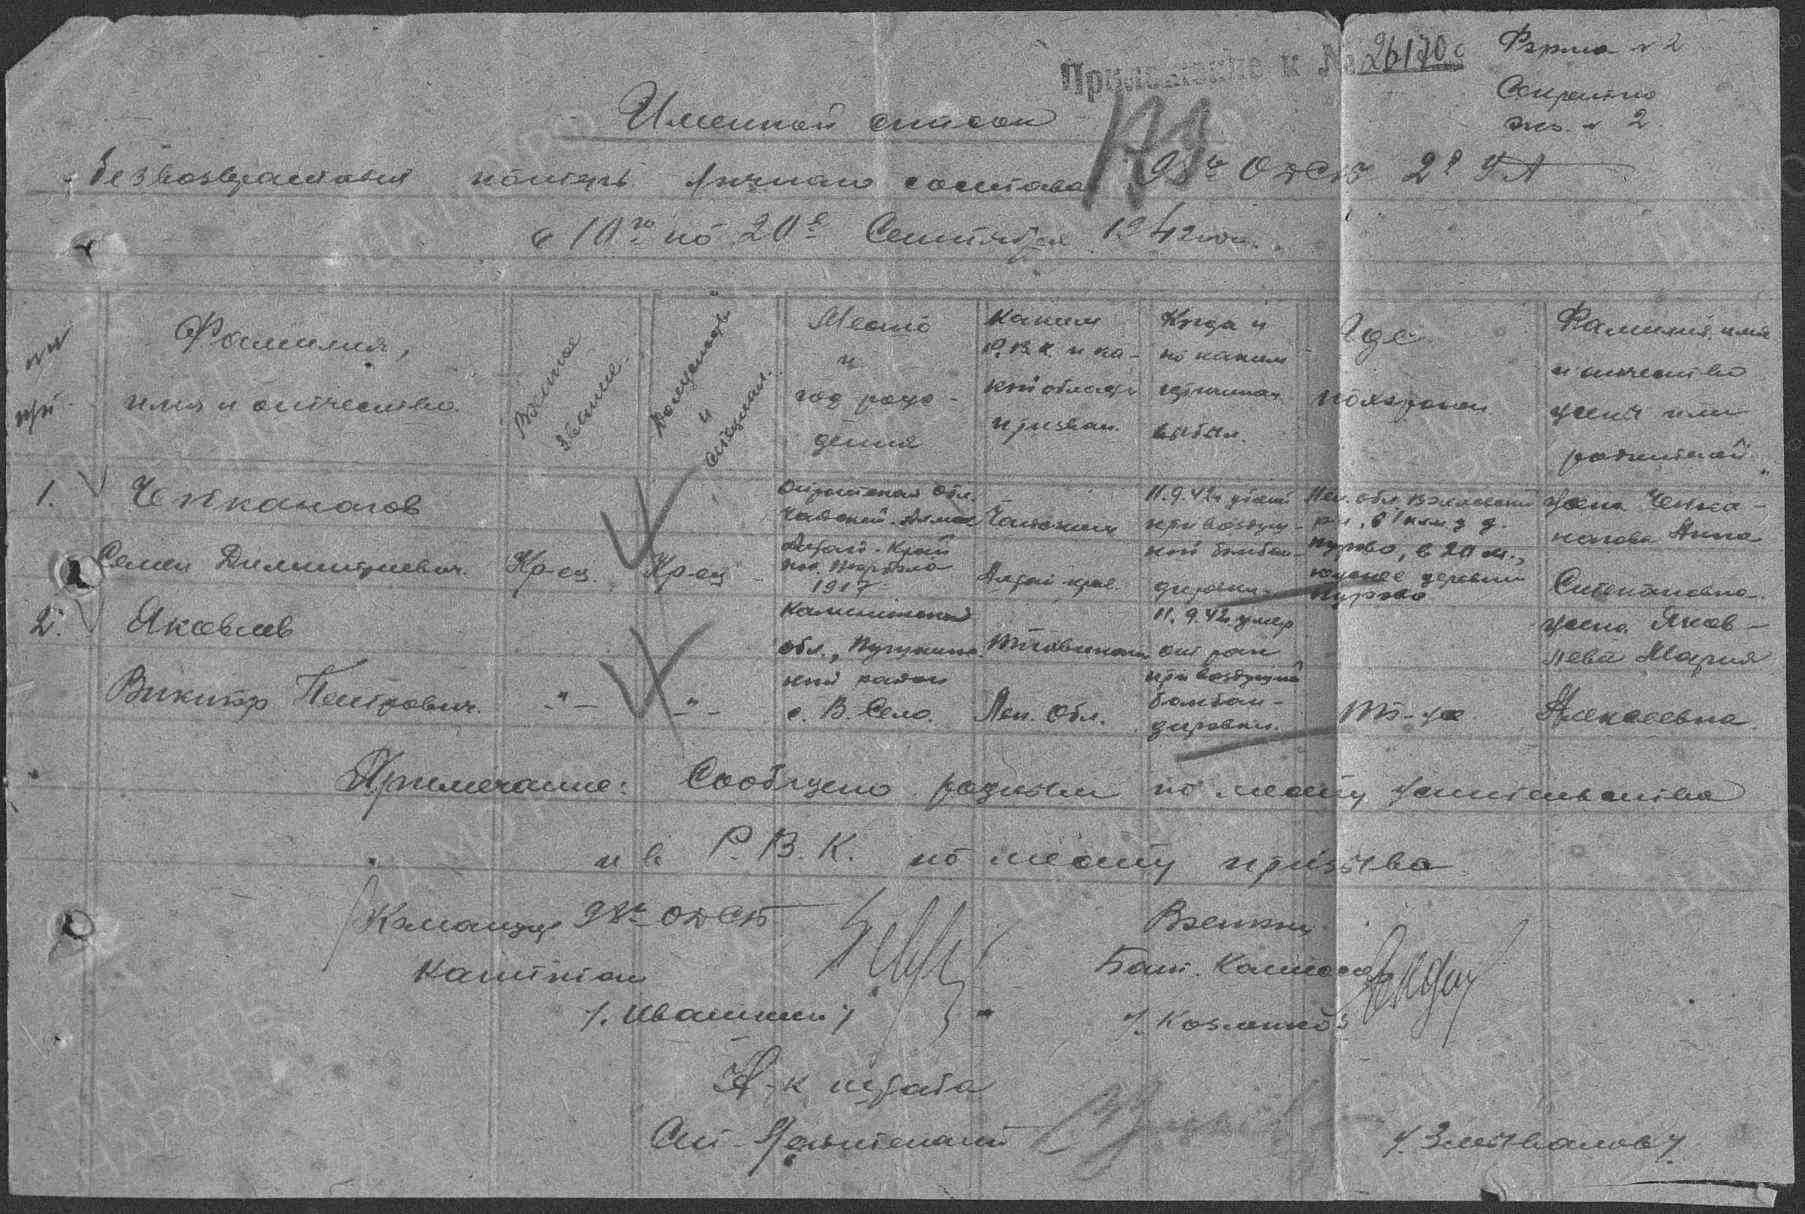 Приложение к № 26170с
Форма № 2
Секретно
экз. № 2
Именной список
173
безвозвратных потерь личного состава 98го ОДСБ 2й УА
с 10го по 20е Сентября 1942 год.
Фамилия,
имя и отчество
Военное
звание
Должность
и
специальн.
Место
и
год рож-
дения
Каким
Р.В.К. и ка-
кой области
призван.
Когда и
по каким
причинам
выбыл.
Где
похоронен
Фамилия, имя
и отчество
жены или
родителей
1. Чепканагов
Семен Дмитриевич. Кр-ец. Кр-ец
Ойротская обл.
Алтай. Край
1917
Алтай край.
11.9.42г. убит
при воздуш-
ной бомбар-
дировки
Лен. обл. Волховский
р-н, в 1 км з. д.
в 20 м.,
южнее деревни
жена Чепка-
нагова Анна
Степановна.
2. Яковлев
Виктор Петрович. -"- -"-
Калининская
обл.,
ский район
с. В. Село.
Лен. Обл.
11.9.42г. умер
от ран
при воздушной
бомбар-
дировки.
то-же
жена Яков-
лева Мария
Алексеевна
Примечание: Сообщено родным по месту жительства
и в Р.В.К. по месту призыва
Командир 98го ОДСБ
Капитан
/. Ивашкин /
Военком
Бат. Комиссар
Н-к штаба
Ст. Лейтенант